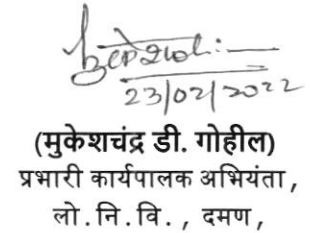 23/02/2022
(मुकेशचंद्र डी. गोहील)
प्रभारी कार्यपालक अभियंता,
लो.नि.वि., दमण,